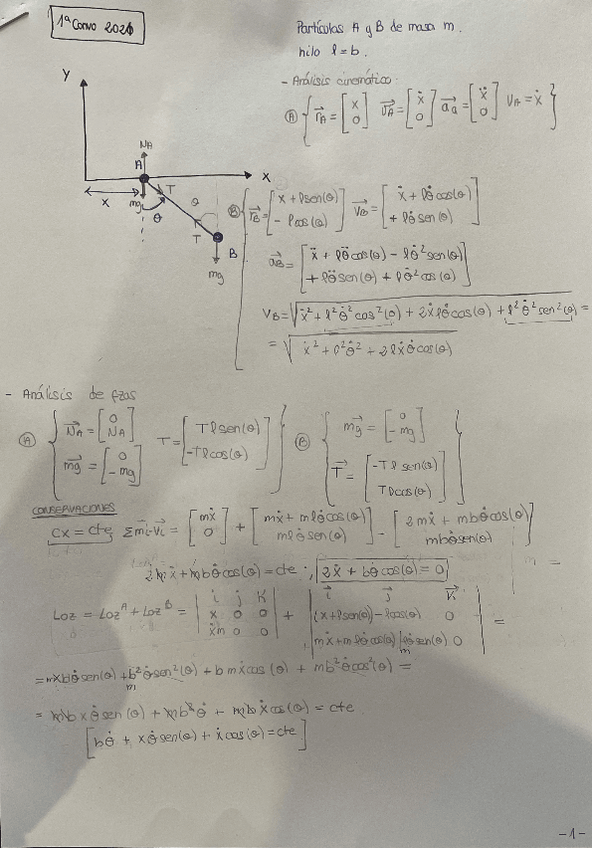 1ª Convo 2021
Partículas A y B de masa m.
hilo l = b.
- Análisis cinemático:
Ⓐ { r⃗A = [x; 0] v⃗A = [ẋ; 0] a⃗a = [ẍ; 0] VA = ẋ }
Y
NA
A
X
x
mg
θ
T
θ
T
B
mg
Ⓑ { r⃗B = [x + l sen(θ); - l cos(θ)] v⃗B = [ẋ + lθ̇ cos(θ); + lθ̇ sen(θ)]
a⃗B = [ẍ + lθ̈ cos(θ) - lθ̇² sen(θ); + lθ̈ sen(θ) + lθ̇² cos(θ)]
VB = √(ẋ² + l²θ̇² cos²(θ) + 2ẋlθ̇ cos(θ) + l²θ̇² sen²(θ)) =
= √(ẋ² + l²θ̇² + 2lẋθ̇ cos(θ))
- Análisis de fzas
Ⓐ { N⃗A = [0; NA] T = [T l sen(θ); -T l cos(θ)] } Ⓑ { m⃗g = [0; - mg]
m⃗g = [0; -mg] T⃗ = [-T l sen(θ); T l cos(θ)] }
CONSERVACIONES
Cx = cte Σm⃗i·v⃗i = [mẋ; 0] + [mẋ + mlθ̇ cos(θ); mlθ̇ sen(θ)] = [2mẋ + mbθ̇ cos(θ); mbθ̇ sen(θ)]
2mẋ + mbθ̇ cos(θ) = cte; 2ẋ + bθ̇ cos(θ) = 0
Loz = LozA + LozB = |i j K; x 0 0; ẋm 0 0| + |i⃗ j⃗ K⃗; (x + l sen(θ)) - l cos(θ) 0; mẋ + mlθ̇ cos(θ) lθ̇ sen(θ) m 0| =
= mxbθ̇ sen(θ) + b²θ̇ sen²(θ) m + bmẋ cos(θ) + mb²θ̇ cos²(θ) =
= mbxθ̇ sen(θ) + mb²θ̇ + mbẋ cos(θ) = cte
[bθ̇ + xθ̇ sen(θ) + ẋ cos(θ) = cte]
-1-